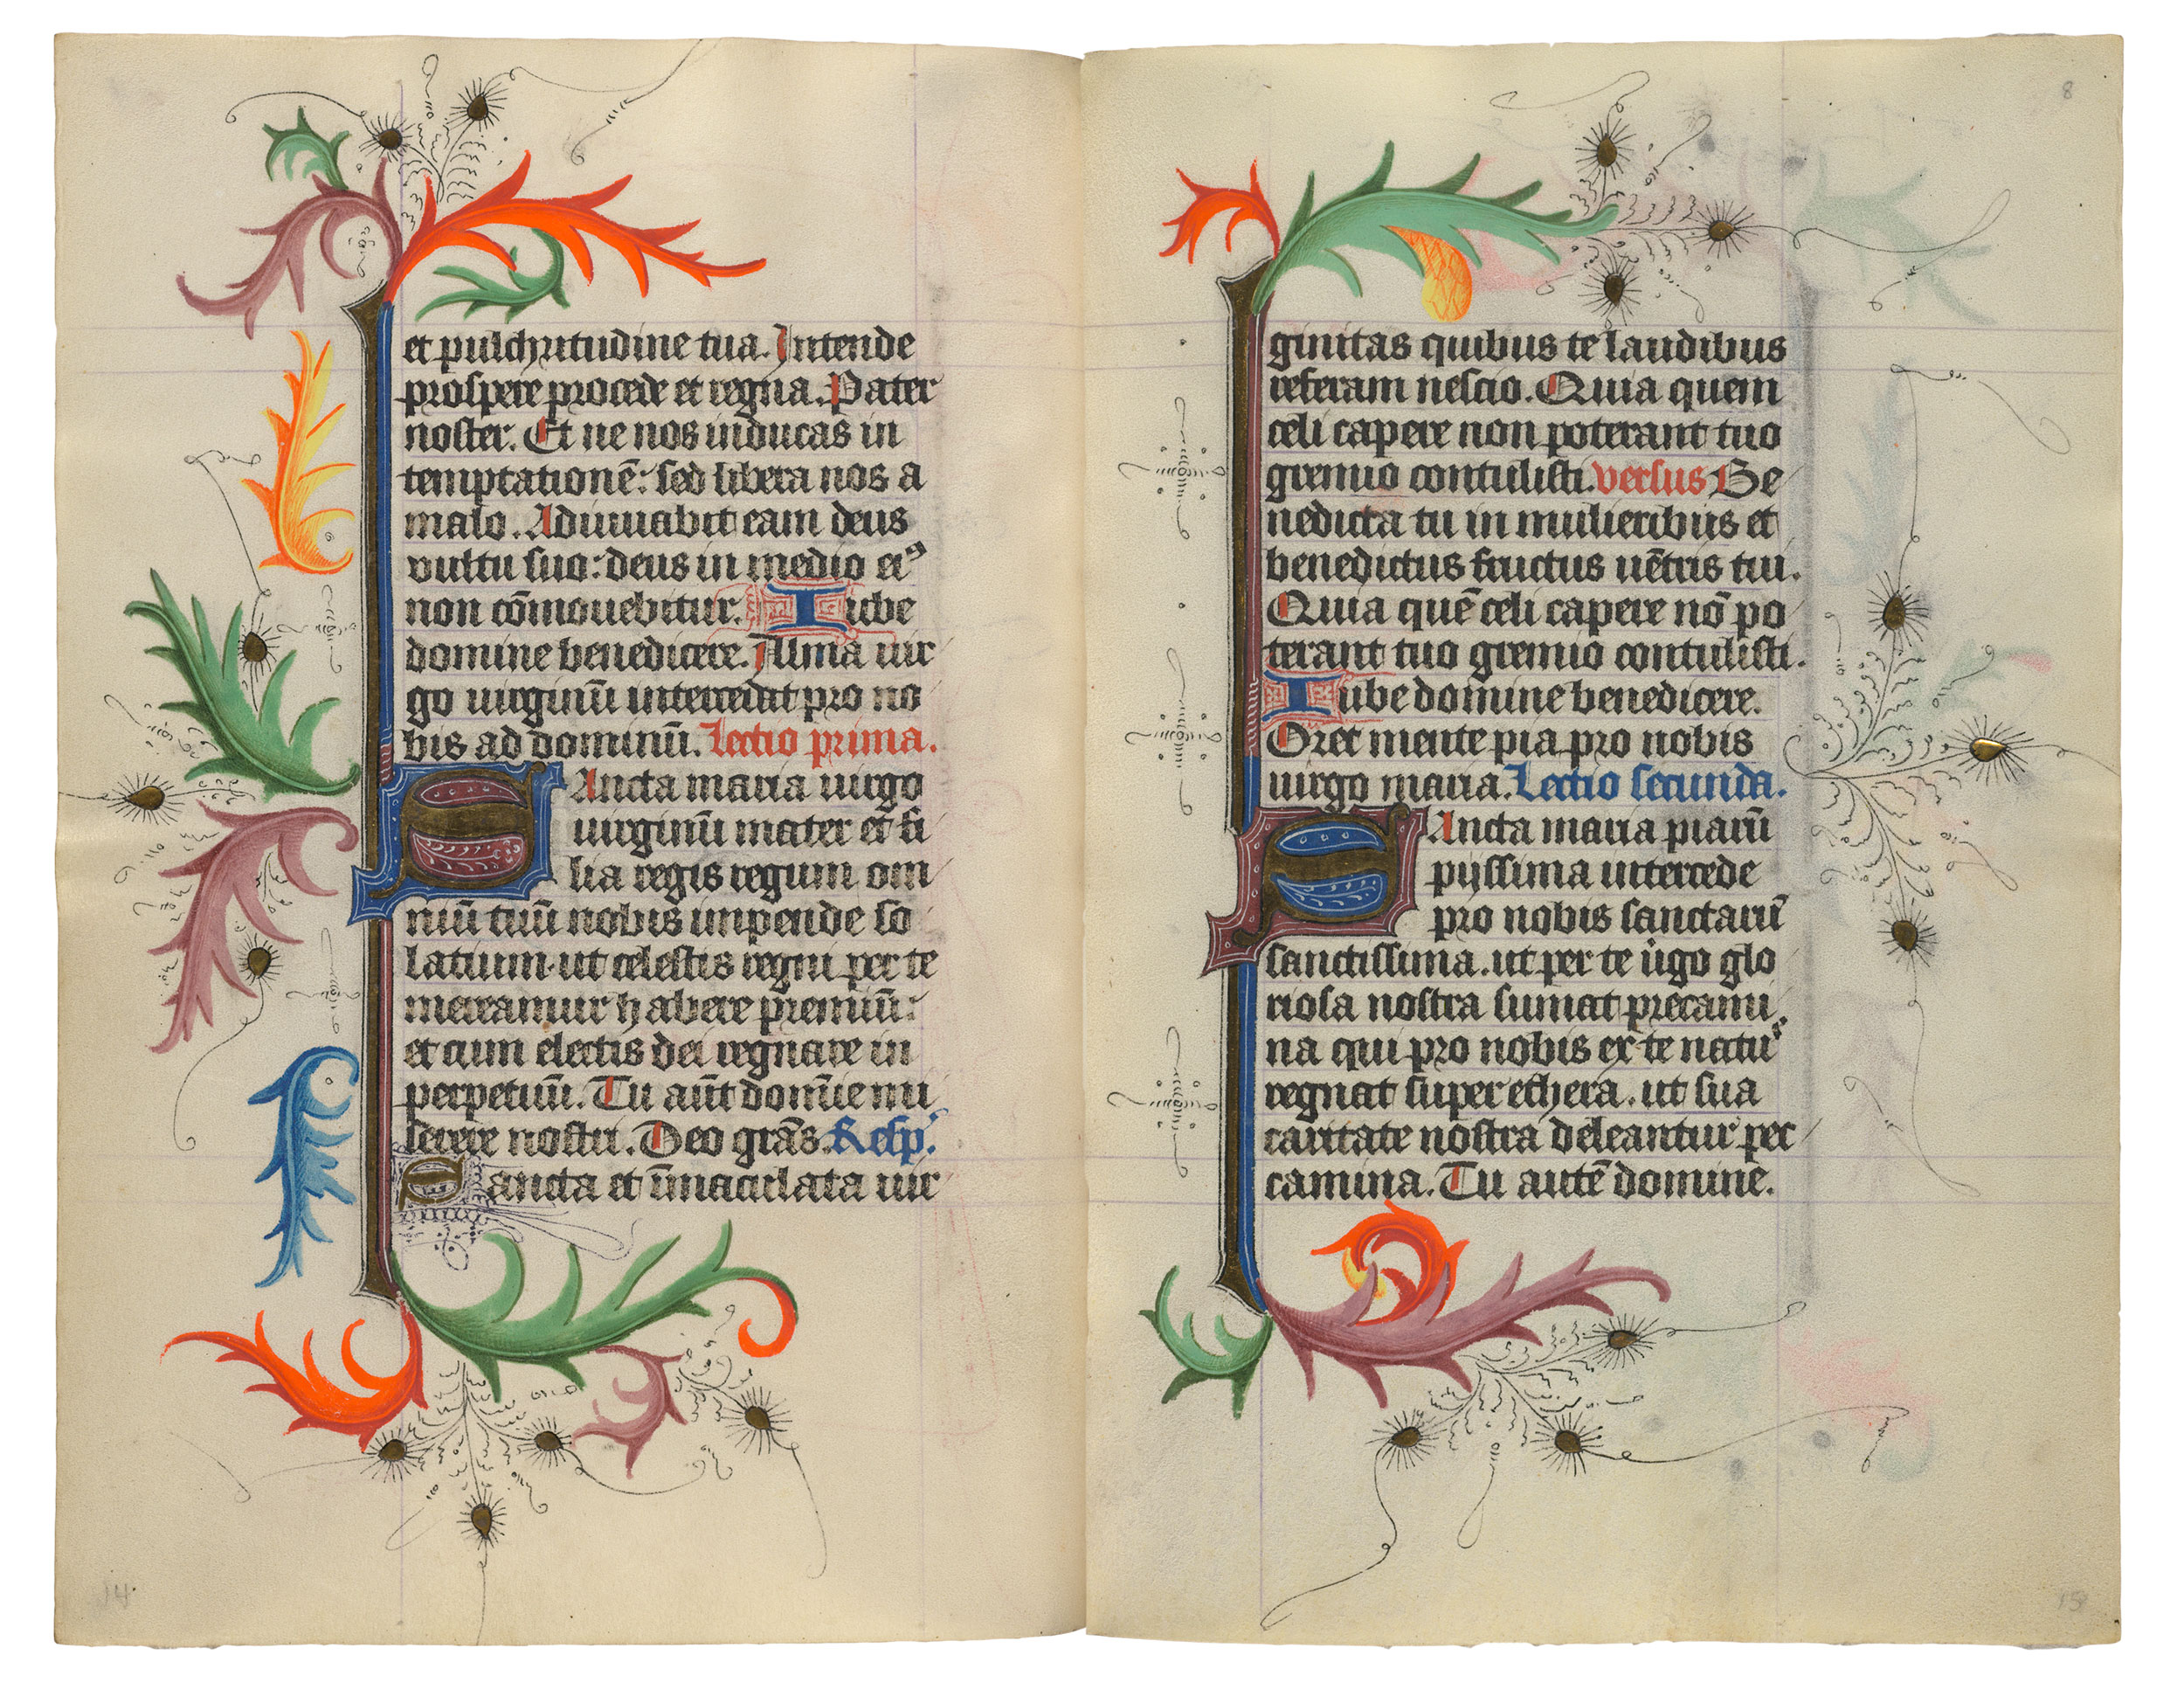 et pulchritudine tua. Intende
prospere procede et regna. Pater
noster. Et ne nos inducas in
temptationē: sed libera nos a
malo. Adiuuabit eam deus
vultu suo: deus in medio eiꝰ
non cōmouebitur. Iube
domine benedicere. Alma uir
go uirginū intercedat pro no
bis ad dominū. Lectio prima.
SAncta maria uirgo
uirginū mater et fi
lia regis regum om
niū tuū nobis impende so
latium. ut celestis regni per te
mereamur habere p̄emiū:
et cum electis dei regnare in
perpetuū. Tu aūt domīe mi
serere nostri. Deo grās. Resp'.
Sancta et īmaculata uir
14
8
ginitas quibus te laudibus
referam nescio. Quia quem
celi capere non poterant tuo
gremio contulisti. versus Be
nedicta tu in mulieribus et
benedictus fructus uētris tui.
Quia quē celi capere nō po
terant tuo gremio contulisti.
Iube domine benedicere.
Oret mente pia pro nobis
uirgo maria. Lectio secunda.
SAncta maria piarū
piissima intercede
pro nobis sanctarū
sanctissima. ut per te uͥgo glo
riosa nostra sumat precami
na qui pro nobis ex te natuˢ
regnat super ethera. ut sua
caritate nostra deleantur pec
camina. Tu autē domine.
15